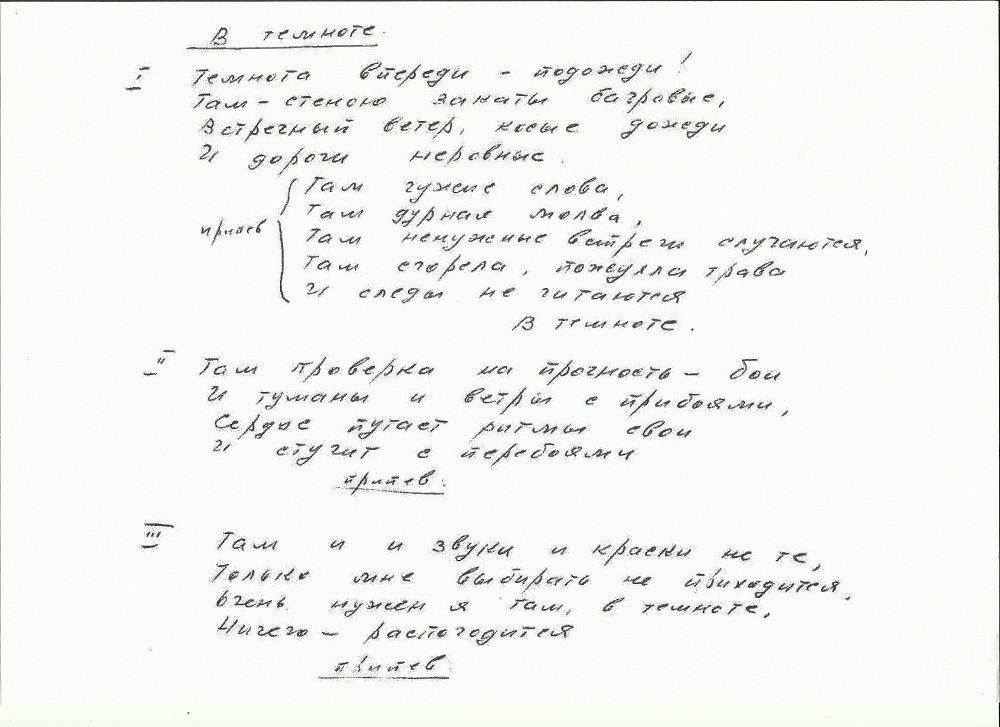 В темноте.
I Темнота впереди - подожди!
Там - стеною закаты багровые,
Встречный ветер, косые дожди
И дороги неровные.
Там чужие слова,
Там дурная молва,
припев
Там ненужные встречи случаются,
Там сгорела, пожухла трава
И следы не читаются
В темноте.
II Там проверка на прочность - бои
И туманы и ветры с прибоями,
Сердце путает ритмы свои
И стучит с перебоями
припев.
III Там и и звуки и краски не те,
Только мне выбирать не приходится.
Очень нужен я там, в темноте,
Ничего - распогодится
припев